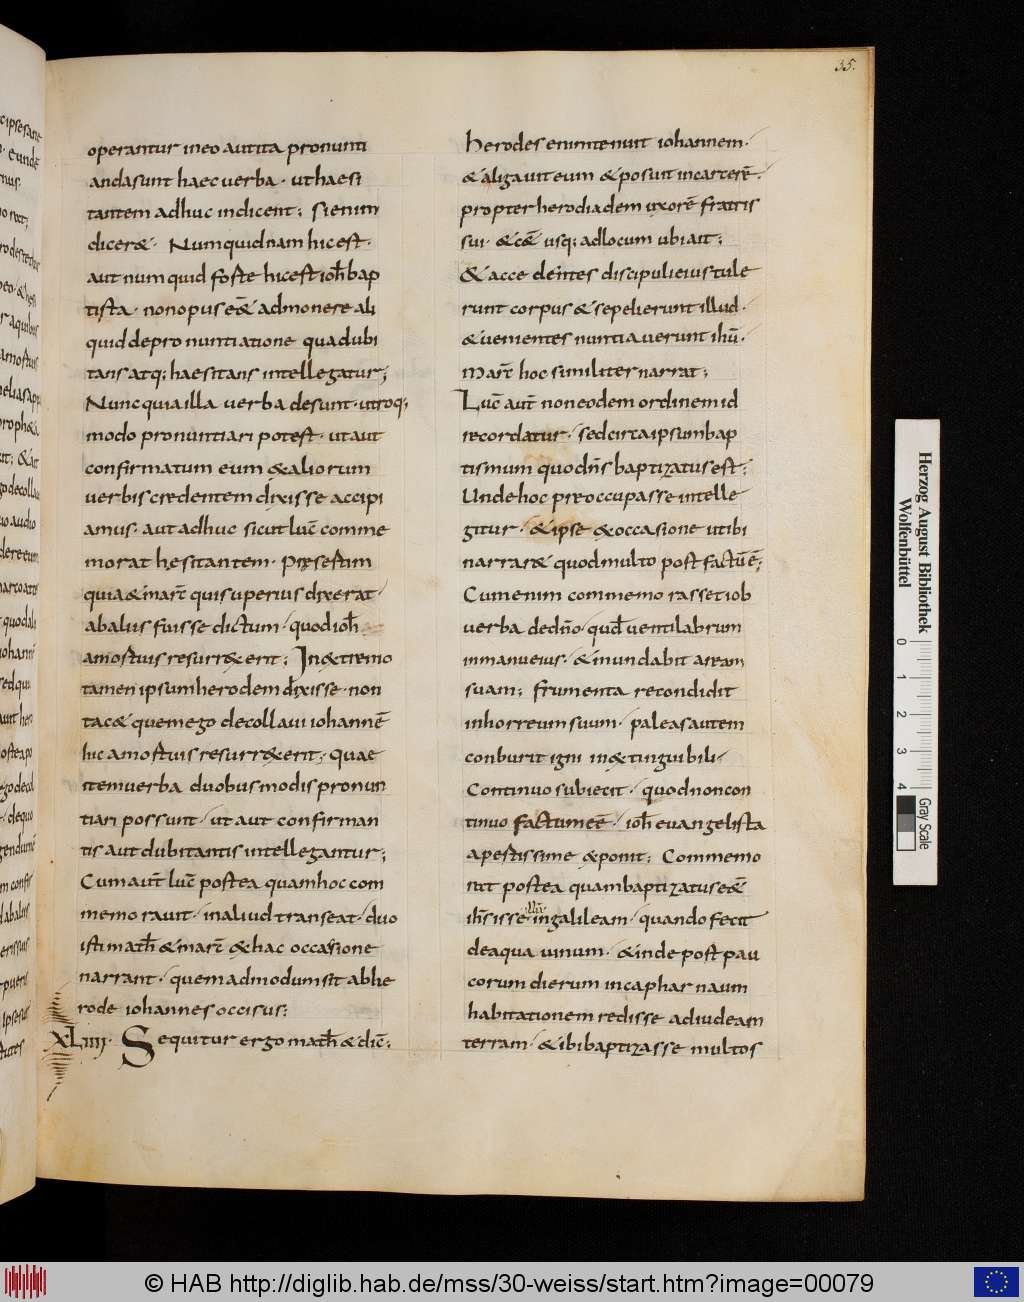 35.
operantur in eo aut ita pronunti
anda sunt haec verba · ut haesi
tantem adhuc indicent; Si enim
dicer& · Numquidnam hic est ·
aut numquid forte hic est ioh̄ bap
tista · non opus e͞& admonere ali
quid de pronuntiatione qua dubi
tans atq; haesitans intellegatur;
Nunc quia illa verba desunt · utroq;
modo pronuntiari potest · ut aut
confirmatum eum & aliorum
verbis credentem dixisse accipi
amus · aut adhuc sicut luc̄ comme
morat hesitantem · Praesertim
quia & marc̄ qui superius dixerat
ab aliis fuisse dictum · quod ioh̄
a mortuis resurrexerit; In extremo
tamen ipsum herodem dixisse · non
tac& quem ego decollavi iohannē
hic a mortuis resurrexerit; quae
item verba duobus modis pronun
tiari possunt · ut aut confirman
tis aut dubitantis intellegantur;
Cum aut̄ luc̄ postea quam hoc com
memoravit · in aliud transeat · duo
isti math̄ & marc̄ & hac occasione
narrant · quemadmodum sit ab he
rode iohannes occisus;
XLIIII · Sequitur ergo math̄ & dic̄;
herodes enim tenuit iohannem ·
& aligavit eum & posuit in carcerē ·
propter herodiadem uxorē fratris
sui · & cē usq; ad locum ubi ait;
& accedentes discipuli eius tule
runt corpus & sepelierunt illud ·
& uenientes nuntiaverunt ihū ·
Marc̄ hoc similiter narrat;
Luc̄ aut̄ non eodem ordine in id
recordatur · sed circa ipsum bap
tismum quo dn̄s baptizatus est;
Unde hoc preoccupasse intelle
gitur · & ipse & occasione ut ibi
narrar& quod multo post factū ē;
Cum enim commemorasset iob
verba de dn̄o · qud̄ ventilabrum
in manu eius · & inundabit aream
suam; frumenta recondidit
in horreum suum · paleas autem
conburit igni inextinguibili ·
Continuo subiecit · quod non con
tinuo factum eē · ioh̄ evangelista
apertissime exponit; Commemo
rat postea quam baptizatus e͞&
ih̄s isse illū in galileam · quando fecit
de aqua vinum · & inde post pau
corum dierum in capharnaum
habitationem redisse ad iudeam
terram · & ibi baptizasse multos
Herzog August Bibliothek
Wolfenbüttel
0 1 2 3 4
Gray Scale
© HAB http://diglib.hab.de/mss/30-weiss/start.htm?image=00079